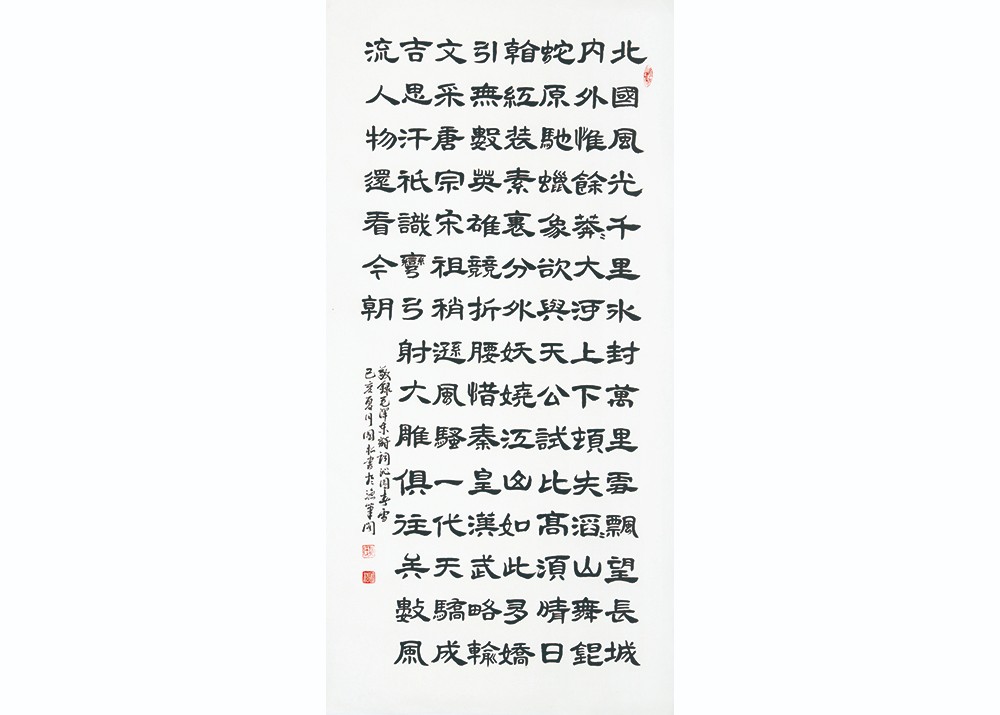 北國風光千里氷封萬里雪飄望長城
内外惟餘莽〻大河上下頓失滔〻山舞銀
蛇原馳蠟象欲與天公試比高須晴日
看紅裝素裹分外妖嬈江山如此多嬌
引無數英雄競折腰惜秦皇漢武略輸
文采唐宗宋祖稍遜風騷一代天驕成
吉思汗祇識彎弓射大雕俱往矣數風
流人物還看今朝
敬録毛澤東詩詞沁园春雪
己亥夏月